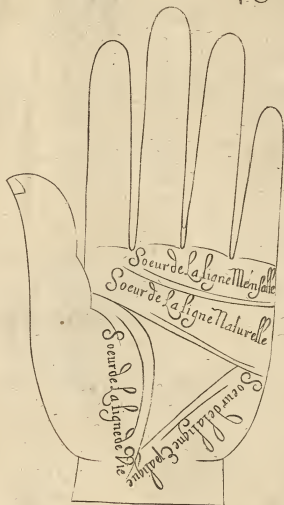 Soeur de La ligne Mensalle
Soeur de La ligne Naturelle
Soeur de La ligne de Vie
Soeur de la ligne Epatique